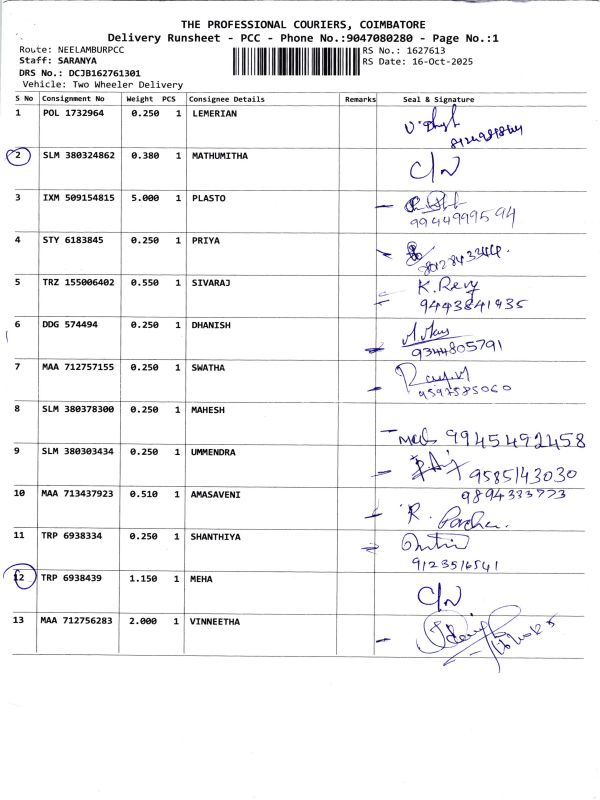 THE PROFESSIONAL COURIERS, COIMBATORE
Delivery Runsheet - PCC - Phone No.:9047080280 - Page No.:1
Route: NEELAMBURPCC RS No.: 1627613
Staff: SARANYA RS Date: 16-Oct-2025
DRS No.: DCJB162761301
Vehicle: Two Wheeler Delivery
S No Consignment No Weight PCS Consignee Details Remarks Seal & Signature
1 POL 1732964 0.250 1 LEMERIAN
2 SLM 380324862 0.380 1 MATHUMITHA
C/N
3 IXM 509154815 5.000 1 PLASTO
9944999594
4 STY 6183845 0.250 1 PRIYA
5 TRZ 155006402 0.550 1 SIVARAJ K. Revy
9443841935
6 DDG 574494 0.250 1 DHANISH
9344805791
7 MAA 712757155 0.250 1 SWATHA
9597585060
8 SLM 380378300 0.250 1 MAHESH
9945492458
9 SLM 380303434 0.250 1 UMMENDRA
9585143030
10 MAA 713437923 0.510 1 AMASAVENI 9894333773
R.
11 TRP 6938334 0.250 1 SHANTHIYA
9123516541
12 TRP 6938439 1.150 1 MEHA
C/N
13 MAA 712756283 2.000 1 VINNEETHA